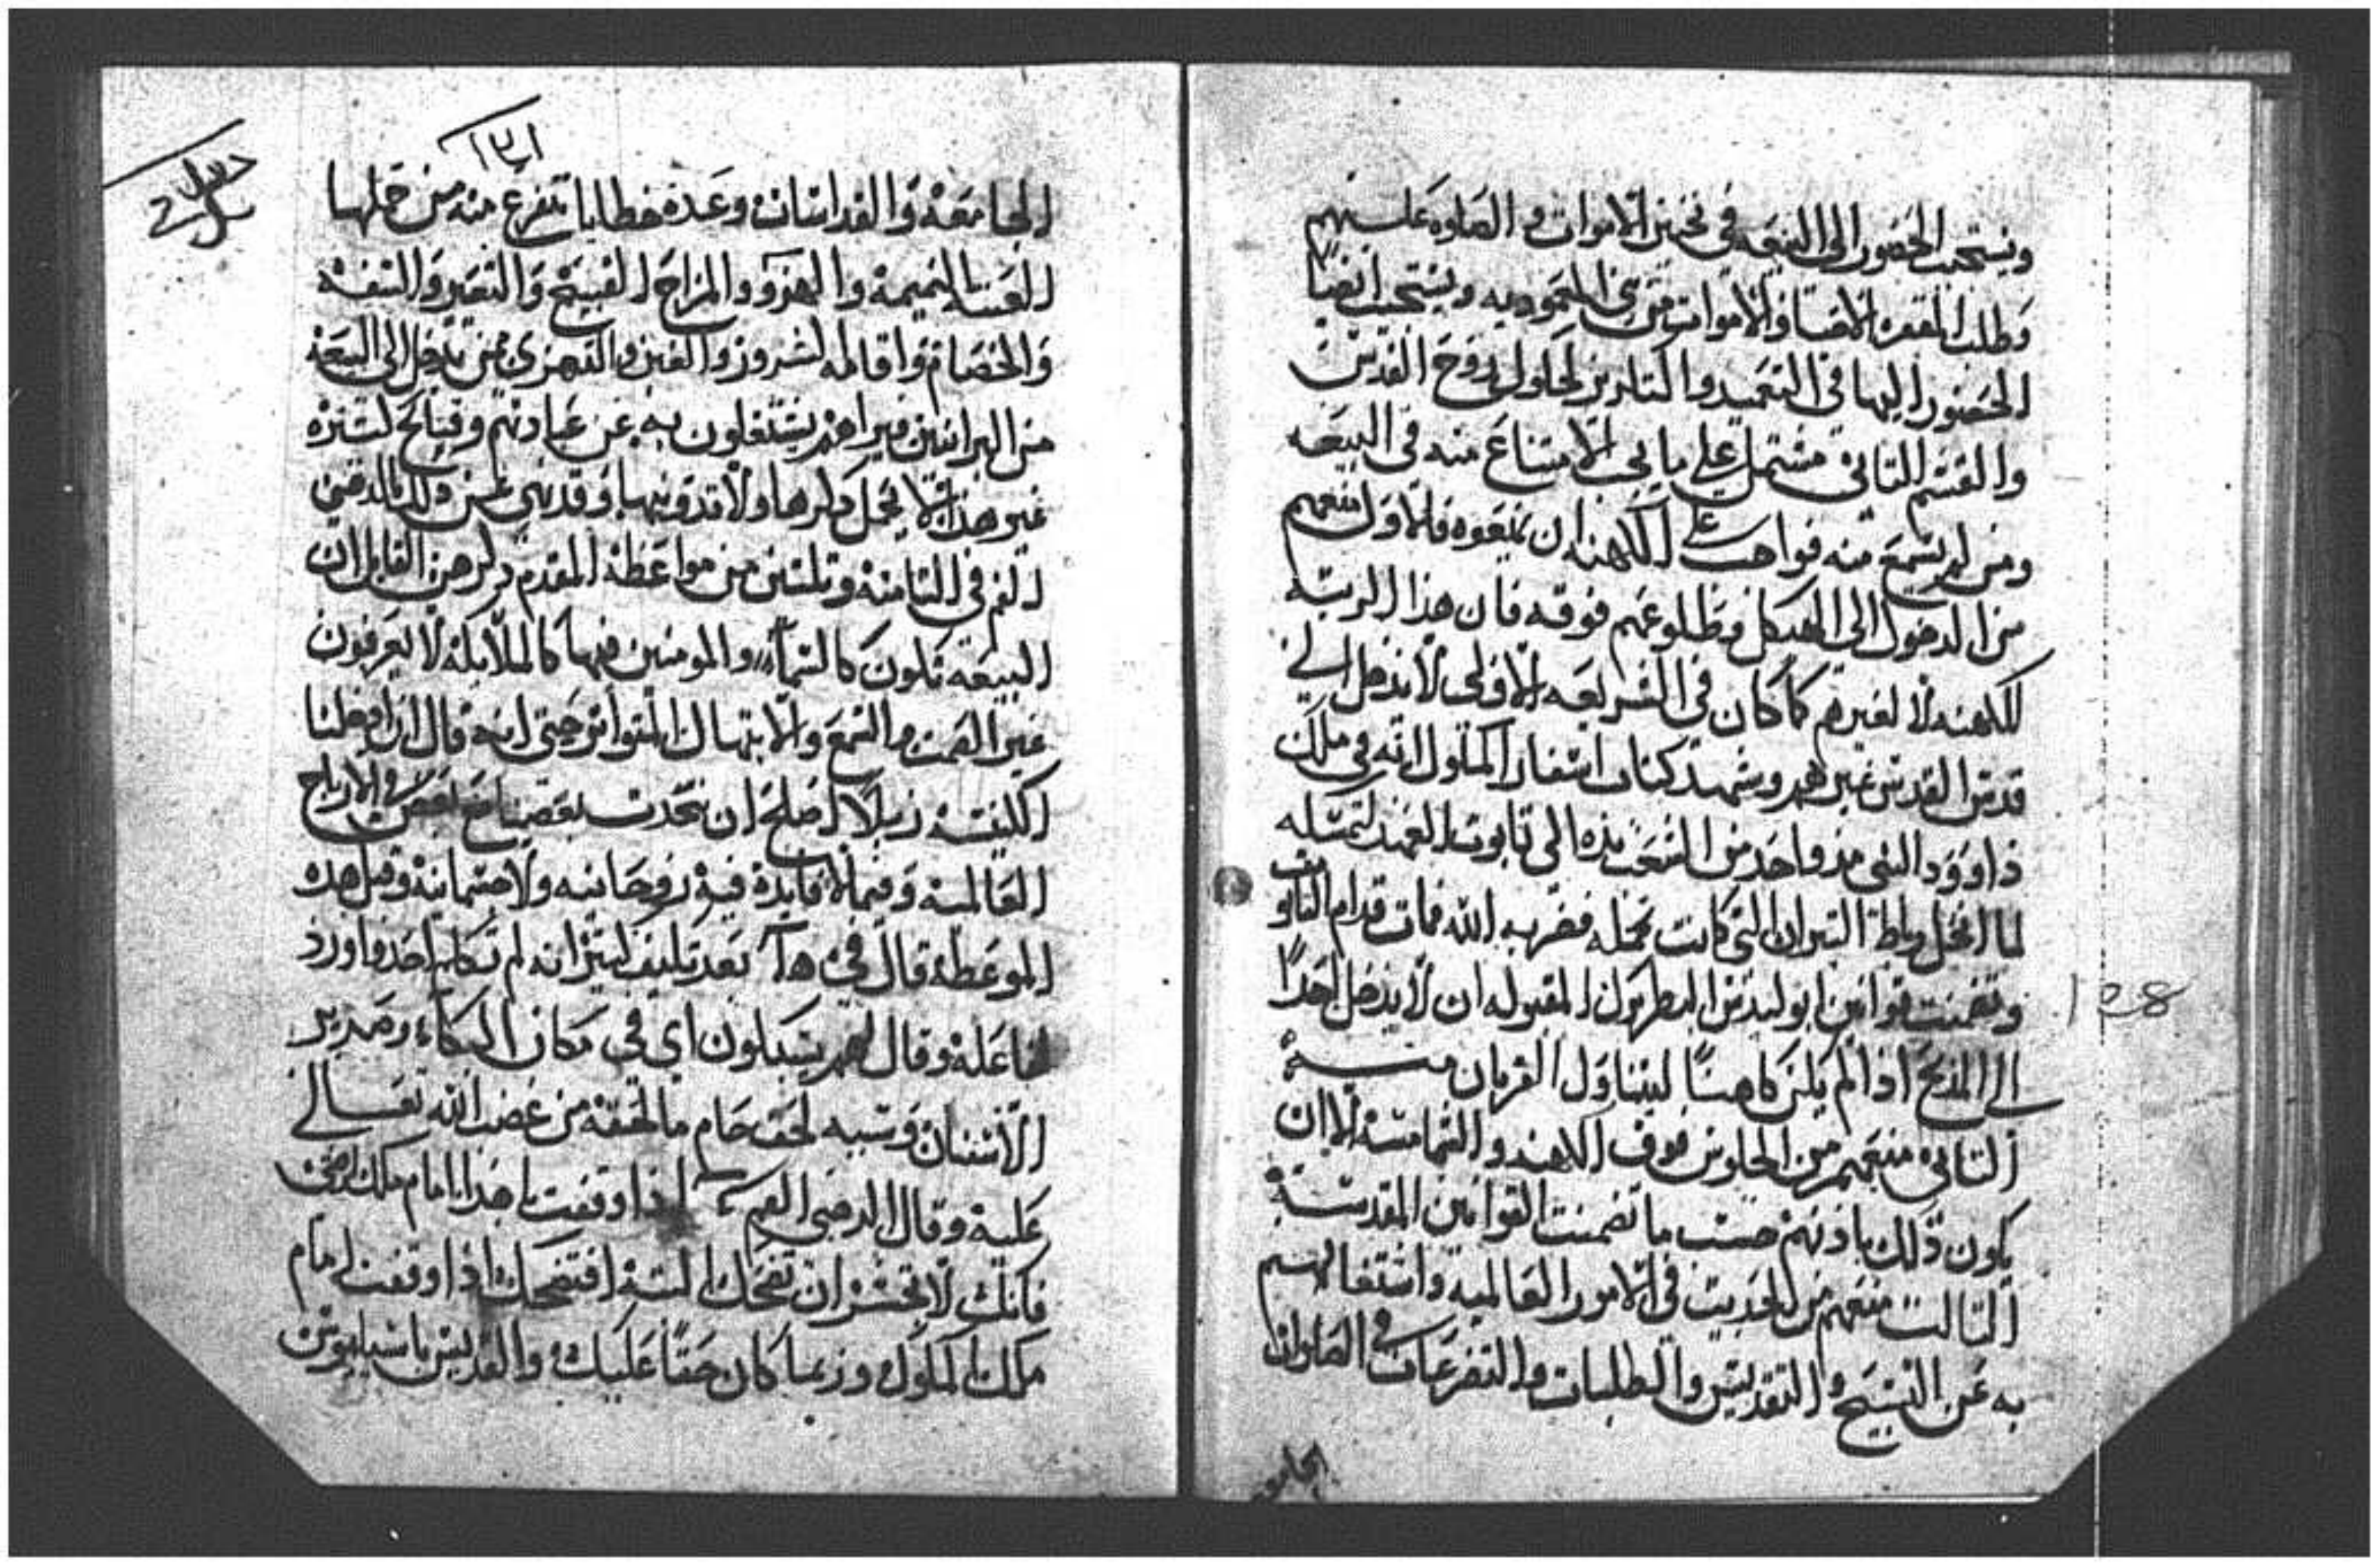 ويستحب الحضور الى البيعه في تجنيز الاموات والصلوه عليهم
وطلب المغفره للاحيا والاموات من بني المعموديه ويستحب ايضًا
الحضور اليها في التعميد والتكاريز لحلول روح القدس
والقسم التاني مشتمل على ما يجب الامتناع منه في البيعه
ومن لم يمتنع منه فواجب على الكهنه ان يمنعوه فالاول منعهم
من الدخول الى الهيكل وطلوعهم فوقه فان هذا الرتبه
للكهنه لا لغيرهم كما كان في الشريعه الاولى لا يدخل الى
قدس القدس غيرهم وشهد كتاب اسفار الملوك انه في ملك
داوود النبي مد واحد من الشعب يده الى تابوت العهد ليمسكه
لما انحل رباط التيران التي كانت تحمله فضربه الله فمات قدام التابوت
وتضمنت قوانين ابوليدس البطريرك المقبوله ان لا يدخل احدًا
الى المذبح اذا لم يكن كاهنًا ليتناول القربان منه
التاني منعهم من الجلوس فوق الكهنه والشمامسه الا ان
يكون ذلك باذنهم حسب ما تضمنت القوانين المقدسة
التالت منعهم من الحديت في الامور العالمية واشتغالهم
به عن التسبيح والتقديس والطلبات والتضرعات في الصلوات
الجامعه
128
١٣١
الجامعة والقداسات وعدة خطايا تتفرع منه من جملها
النميمة والهزو والمزاح القبيح والتعير والسفه
والخصام واقامه الشرور والفتن والتهزي بمن يدخل الى البيعة
من البرانيين فيراهم يشتغلون به عن عبادتهم وقبايح كتيره
غير هذا لا يحمل دكرها ولا تدوينها وقد نهى عن ذلك الدهبي
الفم في التامنة وتلتين من مواعظه المقدم دكرهن القايل ان
البيعة تكون كالسما والمومنين فيها كالملايكة لا يعرفون
غير الصمت والسمع والابتهال المتواتر حتى انه قال ان دخلنا
الكنيسة زبلًا اصلح ان نتحدت بعضنا مع بعض في الارباح
العالمية وفيما لا فايدة فيه روحانيه ولا جسمانية وقبل هده
الموعظة قال في بعد تكليف كتير انه لم تكلم احد واورد
لها علة وقال لهم يسكبون اي في مكان البكاء وصرير
الاسنان وشبه لحق حام ما لحقه من غضب الله تعالى
عليه وقال الدهبي الفم اذا وقفت يا هذا امام ملك ضحك
فانك لا تجسر ان تضحك البتة افتضحك اذا وقفت امام
ملك الملوك وربما كان حقًا عليك والقديس باسيليوس